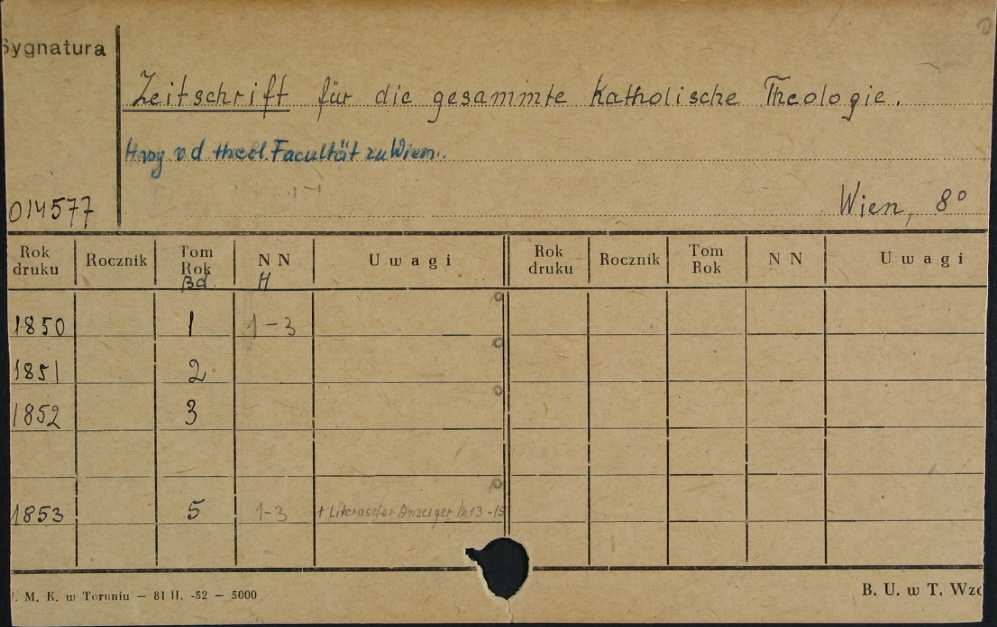 Sygnatura
Zeitschrift für die gesammte Katholische Theologie.
Hrsg v. d. theol. Facultät zu Wien.
014577
Wien, 8°
Rok druku Rocznik Tom Rok Bd. NN H Uwagi Rok druku Rocznik Tom Rok NN Uwagi
1850 1 1-3
1851 2
1852 3
1853 5 1-3 + Literarischer Anzeiger
. M. K. w Toruniu — 81 II. -52 — 5000
B. U. w T. Wzó